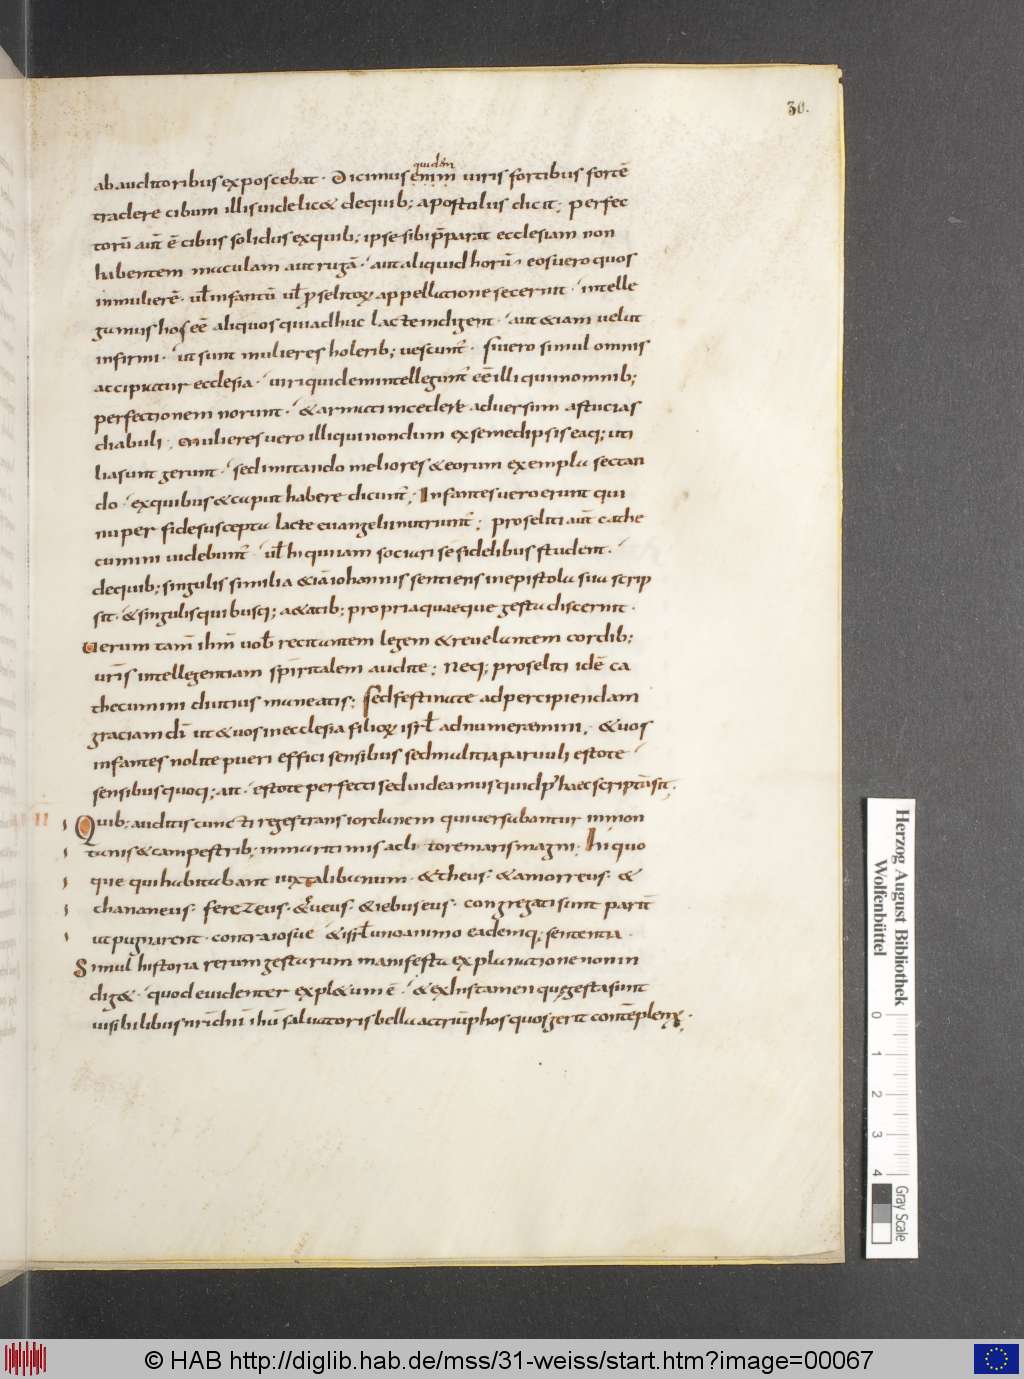 30.
quidem
ab auditoribus exposcebat · Dicimus enim uiris fortibus fortē
tradere cibum illis uidelic& dequib; apostolus dicit; perfec
torū aut̄ ē cibus solidus exquib; ipse sibi p̄parat ecclesiam non
habentem maculam aut rugā · aut aliquid horū · eos uero quos
in mulierē · ul̄ infantū ul̄ appellatione secernit · intelle
gamus hos eē aliquos qui adhuc lacte indigent · aut &iam uelut
infirmi · ut sunt mulieres holerib; uescunt̄ · si uero simul omnis
accipiatur ecclesia · uiri quidem intellegunt̄ eē illi qui in omnib;
perfectionem norunt · & armati incedere aduersum astucias
diabuli · mulieres uero illi qui nondum ex semedipsis eaq; uti
lia sunt gerunt · sed imitando meliores & eorum exempla sectan
do · exquibus & caput habere dicunt̄; Infantes uero erunt qui
nuper fide suscepta lacte euangelii nutriunt̄; proseliti aut̄ cathe
cumini uidebunt̄ · ul̄ hi qui iam sociari se fidelibus student ·
dequib; singulis similia &iā iohannis sentiens in epistola sua scrip
sit · & singulis quibusq; a&atib; propria quaeque gesta discernit ·
Uerum tam̄ ihm̄ uob̄ recitantem legem & reuelantem cordib;
ur̄is intellegentiam sp̄iritalem audite; Neq; proseliti idē ca
thecumini diutius maneatis; sed festinate ad percipiendam
graciam dī ut & uos in ecclesia filioꝝ isrl̄ adnumeremini, & uos
infantes nolite pueri effici sensibus sed malitia paruuli estote
sensibus quoq; ait · estote perfecti sed uideamus quid p haec scripta sit.
II Quib; auditis cuncti reges trans iordanem qui uersabantur in mon
tanis & campestrib; in maritimis ac litore maris magni · hi quo
que qui habitabant iuxta libanum · &theus · & amorreus · &
chananeus · ferezeus · & eueus · & iebuseus · congregati sunt parit̄
ut pugnarent · contra iosue & isrl̄ uno animo eademq; sententia ·
Simul historia rerum gestarum manifesta explanatione non in
dig& · quod euidenter expl&um ē · & ex his tamen quę gesta sunt
uisibilibus nr̄i dn̄i ihū saluatoris bella ac triūphos quos gerit
Herzog August Bibliothek
Wolfenbüttel
0 1 2 3 4
Gray Scale
© HAB http://diglib.hab.de/mss/31-weiss/start.htm?image=00067